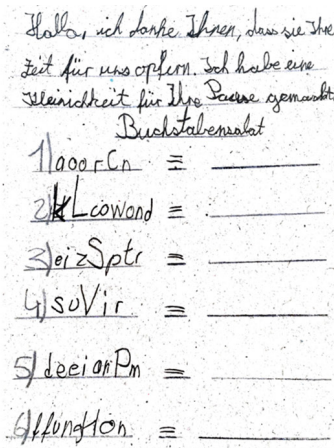 Hallo, ich danke Ihnen, dass sie Ihre
Zeit für uns opfern. Ich habe eine
Kleinichkeit für Ihre Pause gemacht.
Buchstabensalat
1) aoorCn = 
2) Lcowond = 
3) eizSptr = 
4) suVir = 
5) deeianPm = 
6) ffungHon =